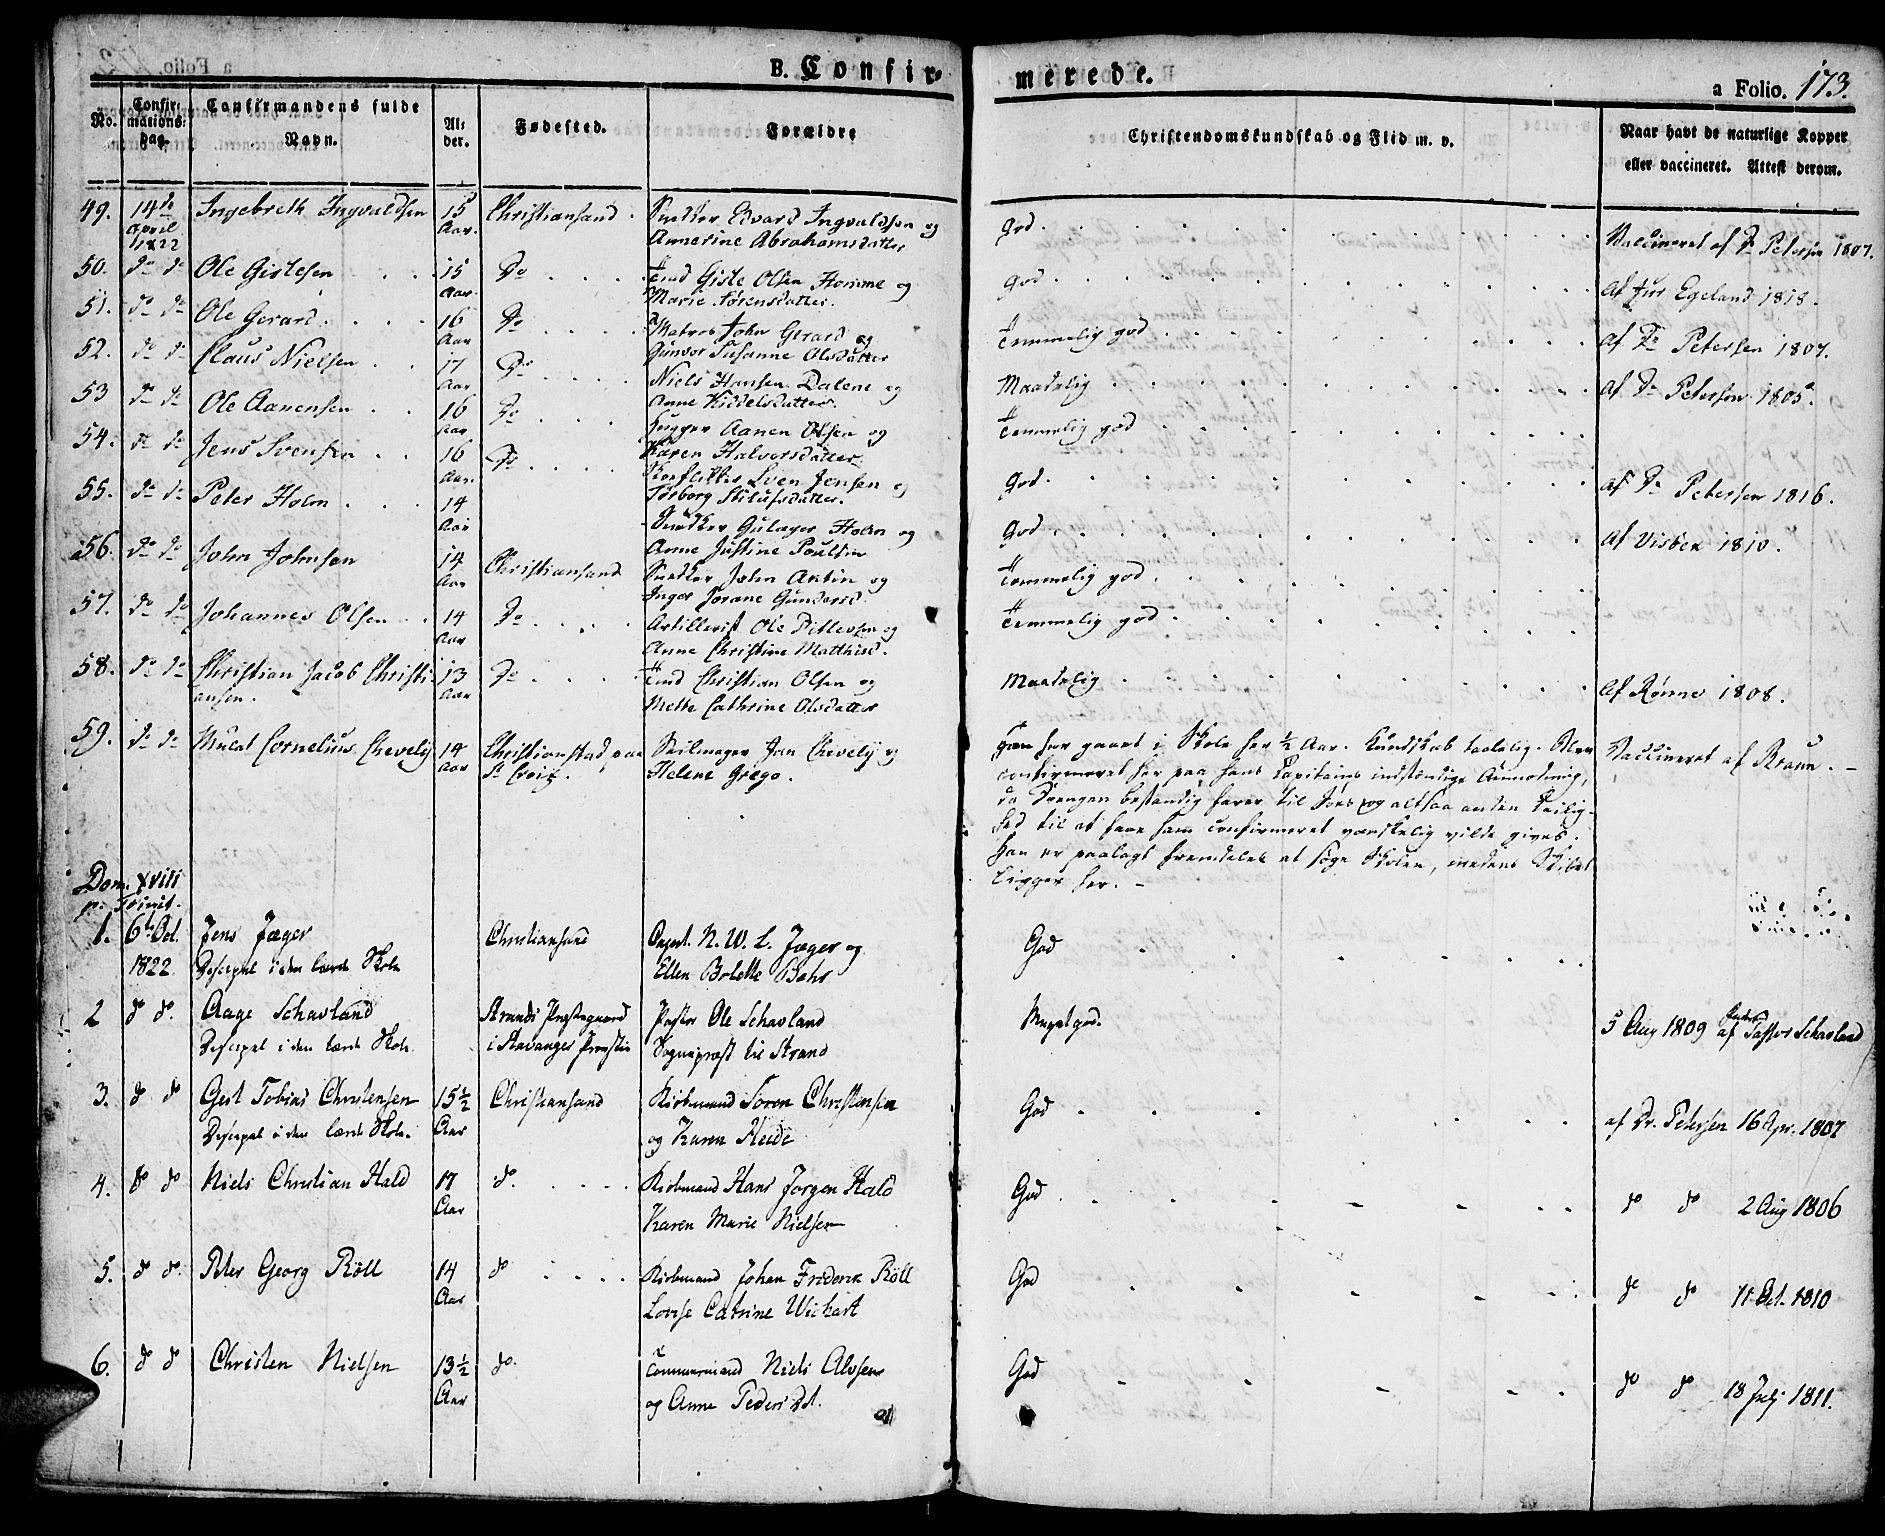 B. Confir-
merede.
a Folio. 173.
No.
Confir-
mations-
Dag.
Confirmandens fulde
Navn.
Al-
der.
Fødested.
Forældre
Christendomskundskab og Flid m. v.
Naar havt de naturlige Kopper
eller vaccineret. Attest derom.
49. 14de Ingebreth Ingvaldsen 15 Christiansand. Snedker Edvard Ingvaldsen og God. Vaccineret af Dr Petersen 1807.
April Aar. Annerine Abrahamsdatter
1822
50. do do Ole Gislesen 15 Do Gisle Olsen Homme og God. af Egeland 1818.
Aar. Marie Sørensdatter.
51. do do Ole Gerard. 16 Do Matros John Gerard og Temmelig god af Dr Petersen 1807.
Aar Gunvor Susanne Olsdatter
52. do do Claus Nielsen 17 Do Niels Hansen Dalene og Maadelig af Dr Petersen 1805.
Aar Anne Kiddelsdatter.
53 do do Ole Aanensen 16 Do Aanen Olsen og Temmelig god
Aar Karen Halvorsdatter
54. do do Jens Svensen 16 Do Sven Jensen og God. af Dr Petersen 1816.
Aar. Torborg
55. do do Peter Holm 14 Snedker Gulager Holm og God. af Visbek 1810.
Aar Anne Justine Poulsen
56. do do John Johnsen 14 Christiansand Snedker John og Temmelig god.
Aar Inger Gundersd.
57. do do Johannes Olsen 14 Do Artillerist Ole Ditlevsen og Temmelig god
Aar Anne Christine Matthisd.
58. do do Christian Jacob Christi- 13 Do Christian Olsen og Maadelig af Rønne 1808.
ansen. Aar Mette Cathrine Olsdatter
59. do do Mulat Cornelius Chevelij 14 Christianstad paa Seilmager Jan Chevelij og
Aar St Croix. Helene Grego.
Han har gaaet i Skole her ½ Aar. Kundskab taalelig. Blev Vaccineret af Braun. –
confirmeret her paa hans Capitains indstændige Anmodning,
da Drengen bestandig farer til Søes og altsaa anden Leilig-
hed til at faae ham confirmeret vanskelig vilde gives.
Han er paalagt fremdeles at søge Skolen, medens Skibet
ligger her. –
Dom. XVIII
p. Trinit.
1. 6te Oct. Jens Jæger Christiansand N. W. L. Jæger og God
1822 Discipel i den lærde Skole Ellen Bolette Bahr
2 do do. Aage Schavland Strands Præstegaard Pastor Ole Schavland Meget god. 5 Aug 1809 af Pastor Schavland
Discipel i den lærde Skole i Stavanger Provstie Sognepræst til Strand
3. do do Gert Tobias Christensen 15½ Christiansand Kiøbmand Soren Christensen God af Dr. Petersen 16 Apr. 1807
Discipel i den lærde Skole. Aar og Karen Heide
4. do do Niels Christian Hald 17 do. Kiøbmand Hans Jørgen Hald God do do 2 Aug 1806
Aar Karen Marie Nielsen
5. do do. Peter Georg Röll 14 do Kiøbmand Johan Frederik Röll God do do 11 Oct. 1810
Aar Lovise Catrine Wichart
6. do do Christen Nielsen 13½ do. Tømmermand Niels Alvsen God do do 18 Julj 1811.
Aar og Anne Peders Dt.